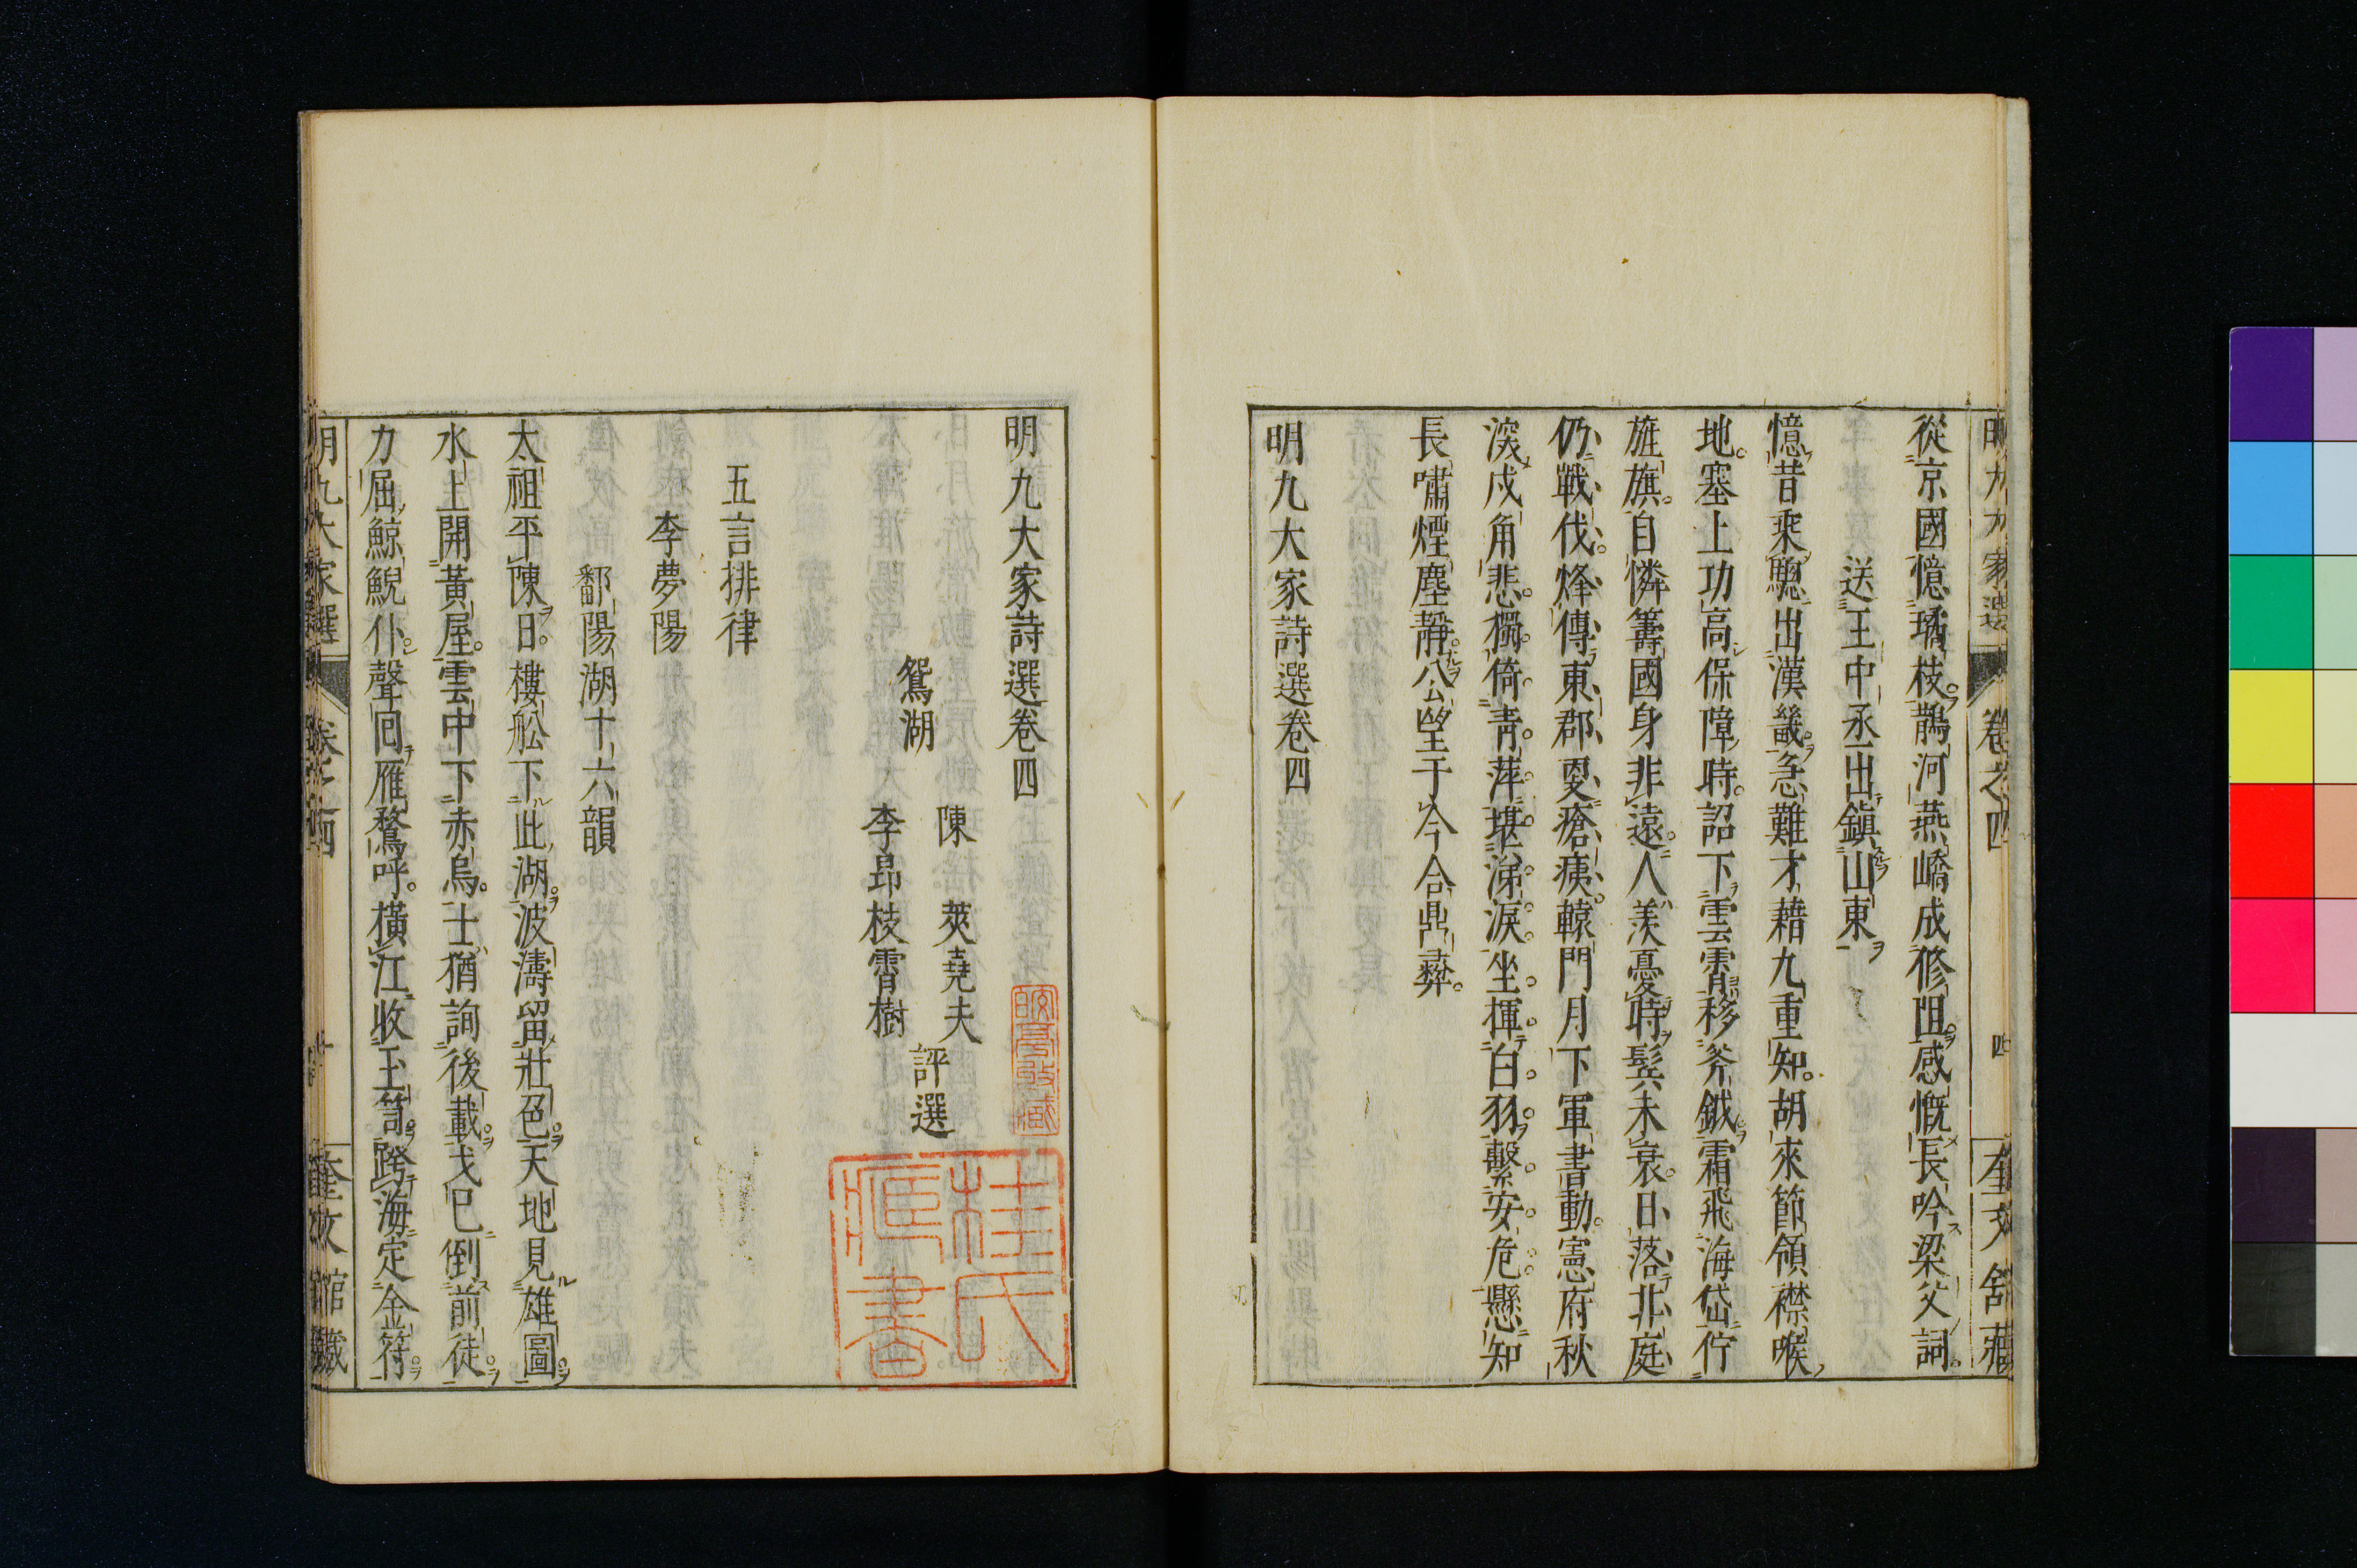 明九大家選 卷之四 四 奎文舘藏
從京國憶璚枝鵲河燕嶠成修阻感慨長吟梁父詞
送王中丞出鎮山東
憶昔乘驄出漢畿急難才藉九重知胡來節領襟喉
地塞上功高保障時詔下雲霄移斧鉞霜飛海岱佇
旌旗自憐籌國身非遠人羨憂時髩未衰日落北庭
仍戰伐烽傳東郡更瘡痍轅門月下軍書動憲府秋
深戍角悲獨倚青萍堪涕淚坐揮白羽繫安危懸知
長嘯煙塵靜公望于今合鼎彝
明九大家詩選卷四
明九大家詩選卷四
鴛湖
陳莢堯夫
李昂枝霄樹
評選
五言排律
李夢陽
鄱陽湖十六韻
太祖平陳日樓舩下此湖波濤留壯色天地見雄圖
水上開黃屋雲中下赤烏士猶詢後載戈已倒前徒
力屈鯨鯢仆聲回雁鶩呼橫江收玉笥跨海定金符
明九大家選 卷之四 奎文館藏
桂氏藏書